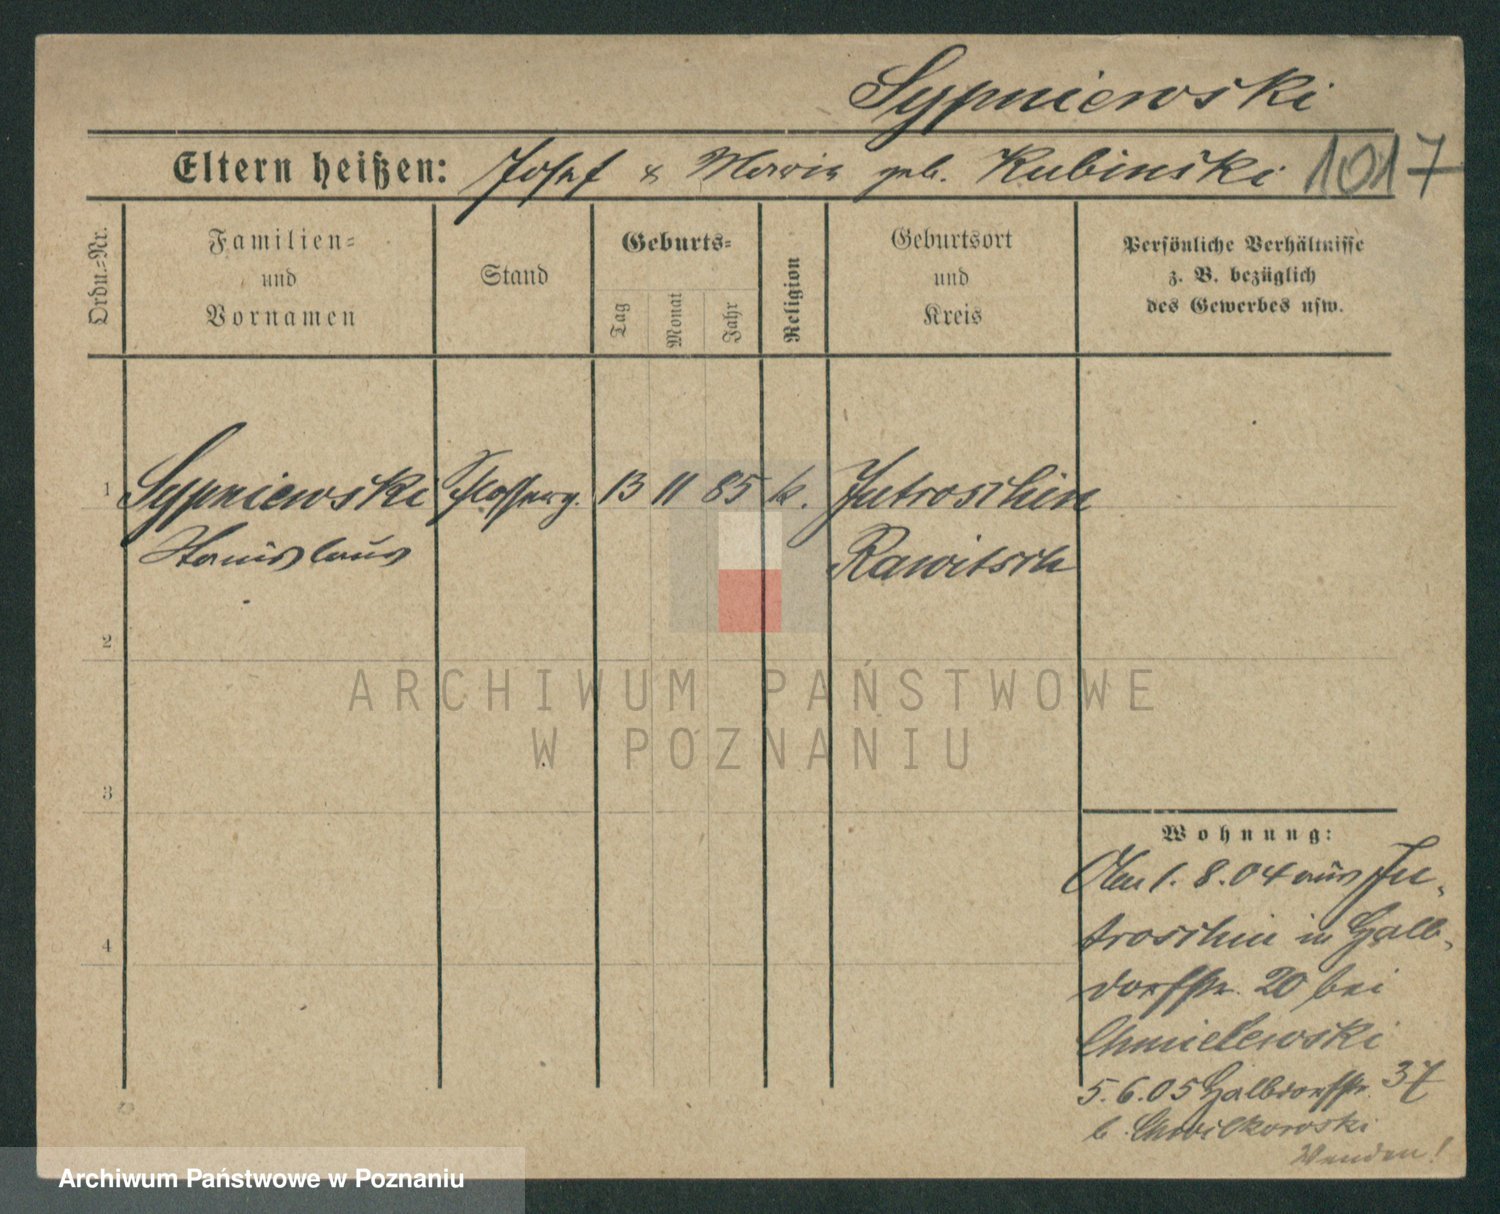 Sypniewski
Eltern heißen: Josef & Maria geb. Kubinski 1017
Ordn.-Nr.
Familien-
und
Vornamen
Stand
Geburts-
Tag
Monat
Jahr
Religion
Geburtsort
und
Kreis
Persönliche Verhältnisse
z. B. bezüglich
des Gewerbes usw.
1 Sypniewski Schlosserg. 13 11 85 k. Jutroschin
Stanislaus Rawitsch
2
3
4
ARCHIWUM PAŃSTWOWE
W POZNANIU
Wohnung:
1. 8. 04 aus Ju-
troschin in Halb-
dorfstr. 20 bei
Chmielewski
5. 6. 05 Halbdorfstr. 37
b. Chwilkowski
Wenden!
Archiwum Państwowe w Poznaniu